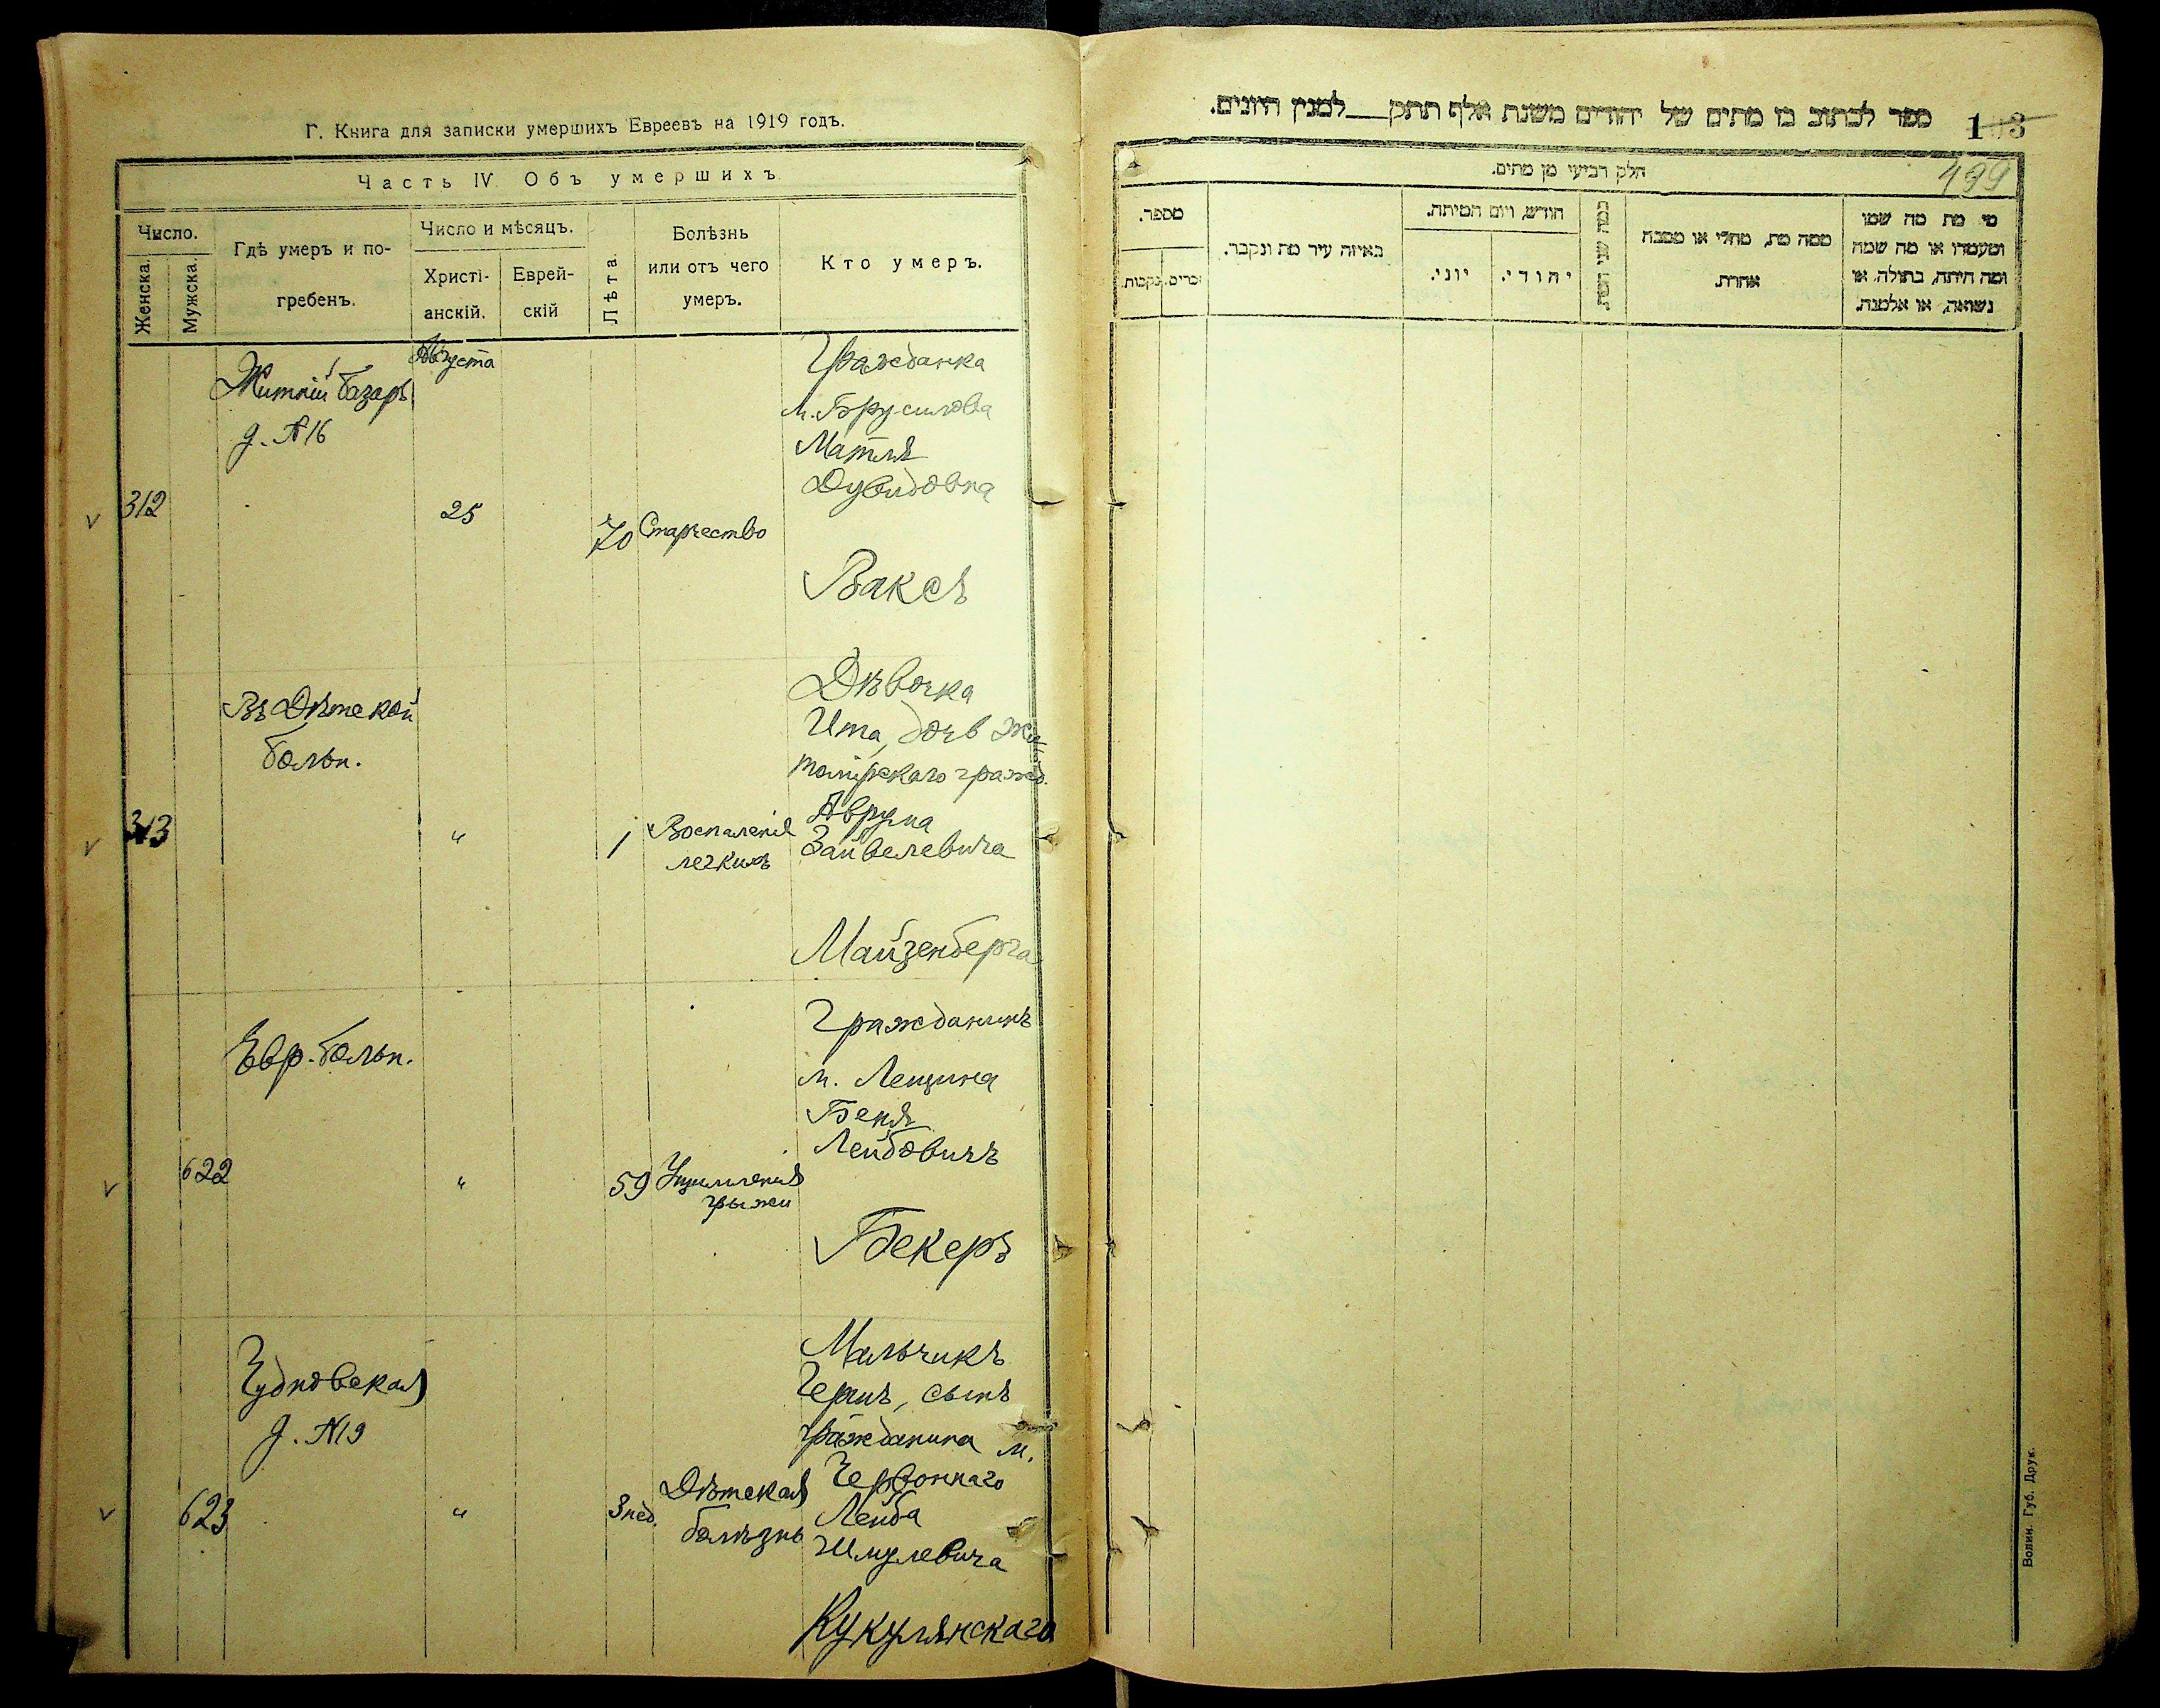 Г. Книга для записки умершихъ Евреевъ на 1919 годъ.
Часть IV Объ умершихъ
Число.
Женска.
Мужска.
Гдѣ умеръ и по-
гребенъ.
Число и мѣсяцъ.
Христі-
анскій.
Еврей-
скій
Лѣта
Болѣзнь
или отъ чего
умеръ.
Кто умеръ.
312
Житній базаръ
д. №16
Августа
25
70
Старчество
Гражданка
м. Брусилова
Матля
Дувидовна
Ваксъ
313
Въ Дѣтской
больн.
"
1
Воспаленія
легкихъ
Дѣвочка
Ита, дочь Жи-
томірскаго гражд.
Аврума
Зайвелевича
Майзенберга
622
Евр. больн.
"
59
Ущемленія
грыжи
Гражданинъ
м. Лещина
Беня
Лейбовичъ
Бекеръ
623
Чудновская
д. №19
"
3 нед.
Дѣтская
болѣзнь
Мальчикъ
Герш, сынъ
гражданина м.
Червоннаго
Лейба
Шмулевича
Кукулянскаго
ספר לכתוב בו מתים של יהודים משנת אלף תתק למנין היונים.
103
499
חלק רביעי מן מתים.
מספר.
זכרים.
נקבות.
באיזה עיר מת ונקבר.
חודש, ויום המיתה.
יוני.
יהודי.
כמה שני
ממה מת, מחלי או מסבה
אחרת.
מי מת מה שמו
ומעמדו או מה שמה
ומה היתה, בתולה, או
נשואה, או אלמנה.
Волин. Губ. Друк.